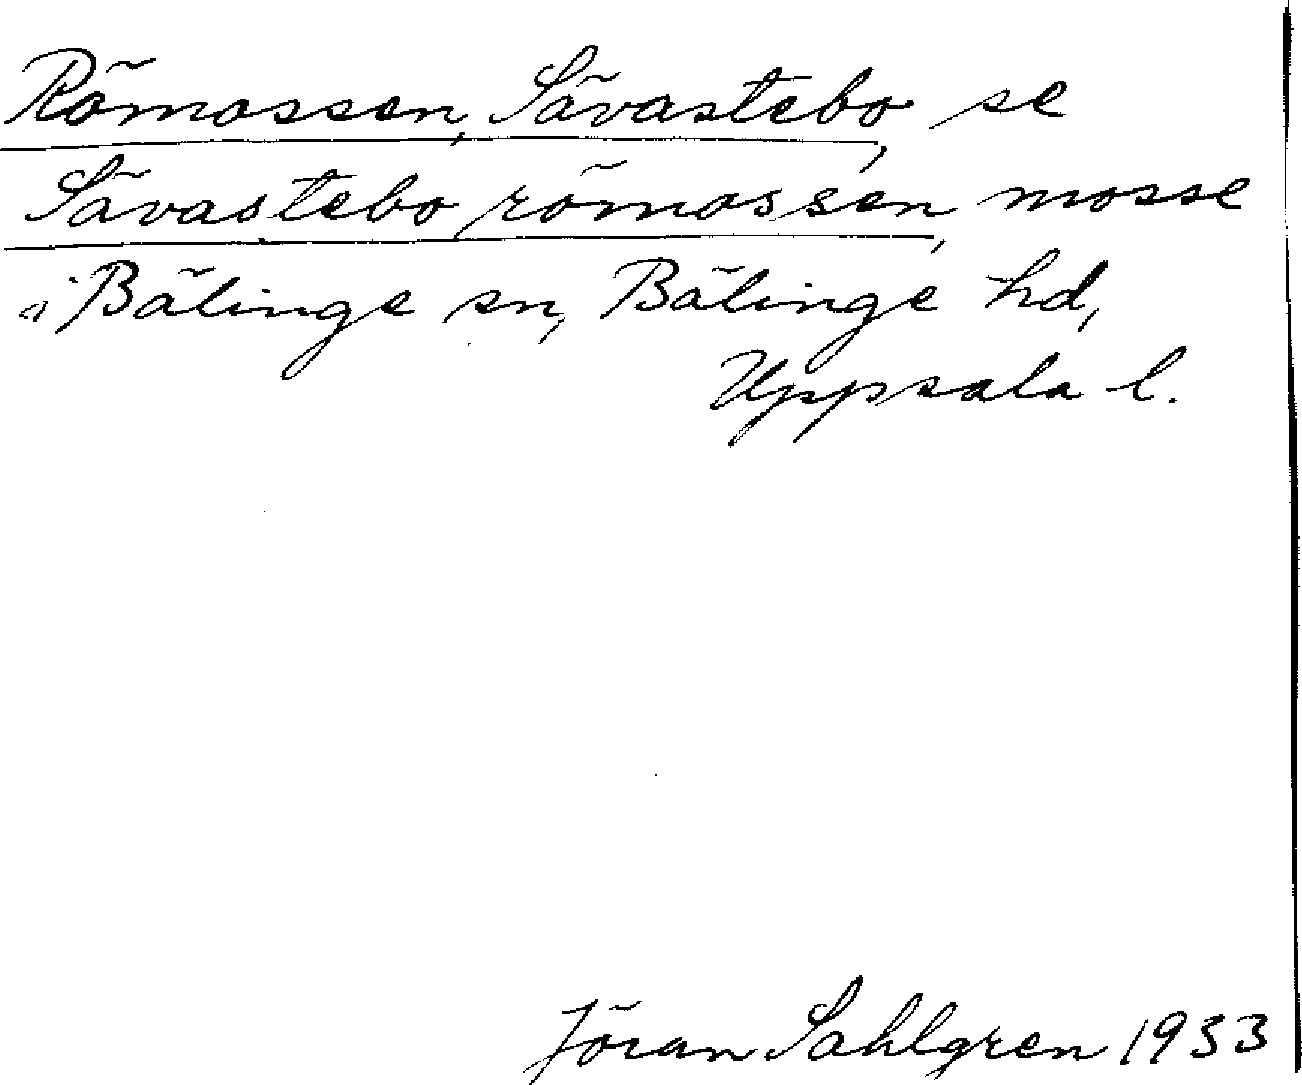 Römossen, Sävastebo, se
Sävastebo römossen, mosse
i Bälinge sn, Bälinge hd,
Uppsala l.
Jöran Sahlgren 1933